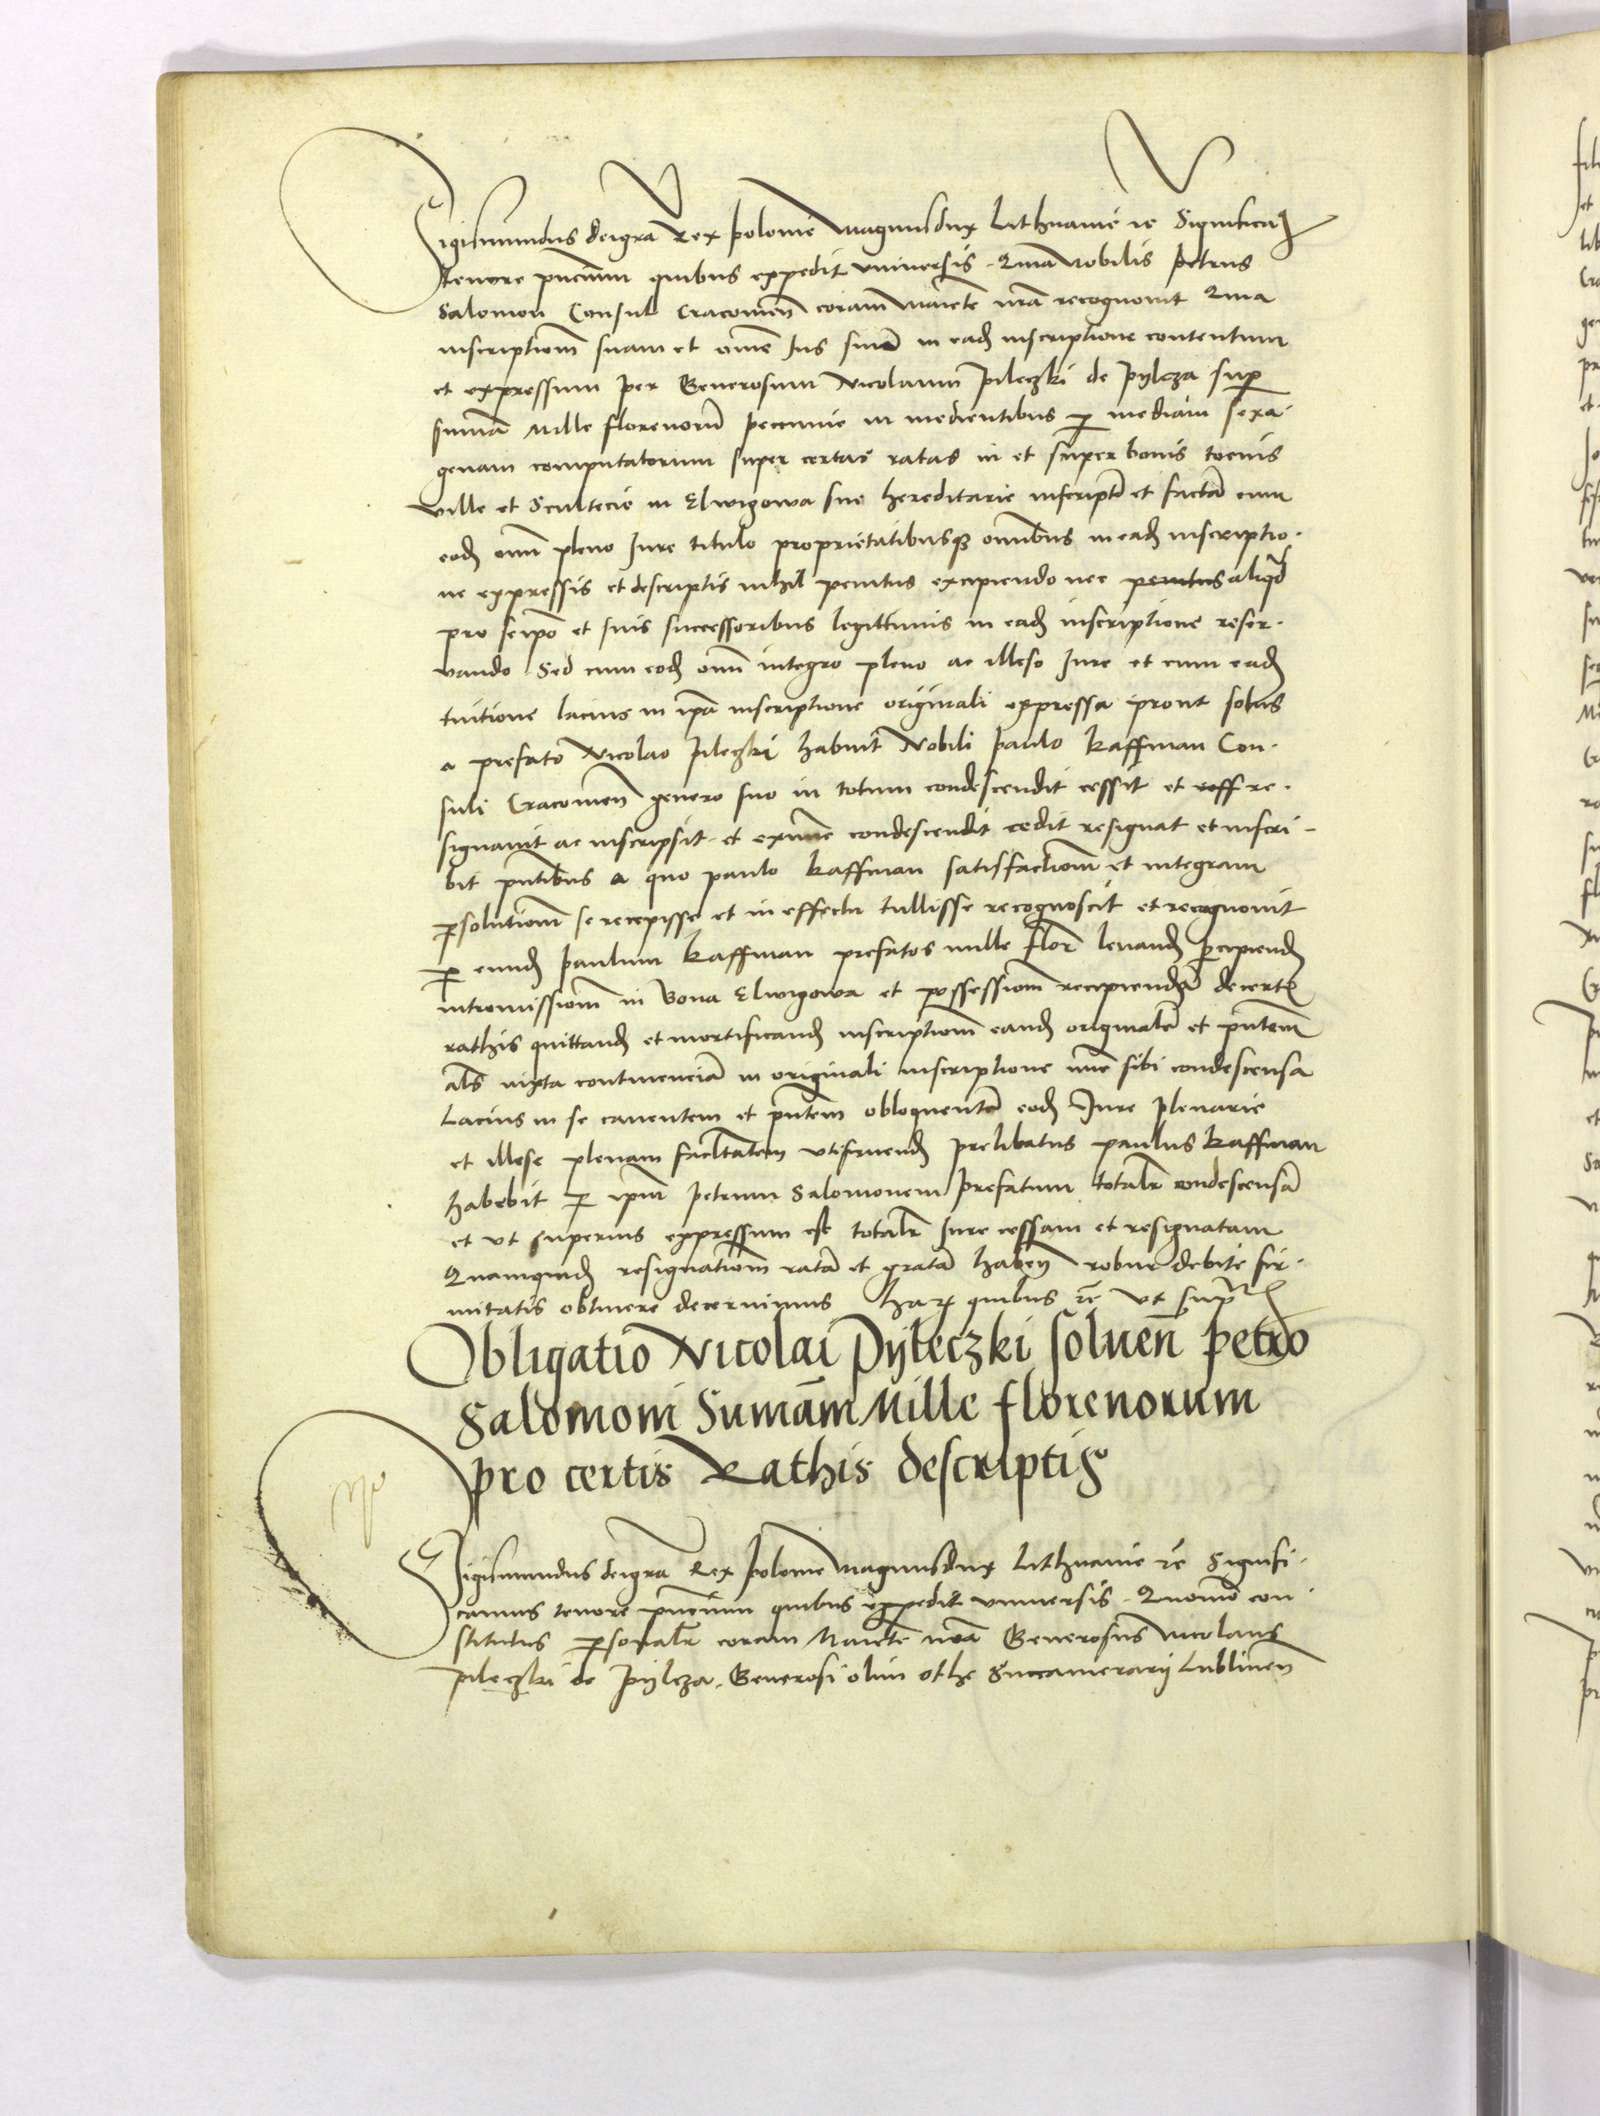 Sigismundus deigra Rex polonie Magnusdux Lithuanie re Significam9
tenore pñcium quibus expedit vniuersis. Quia Nobilis Petrus
Salomon Consul Cracouieñ coram Maiete nrã recognouit Quia
inscriptiom suam et ome Ius suũ in eadẽ inscriptione contentum
et expressum per Generosum Nicolaum Pileczki de Pylcza sup
summã Mille florenorũ pecunie in medientibus p mediam sexa-
genam computatorum super certas ratas in et super bonis toeius
ville et Scultecie in Elwigowa sue hereditarie inscriptã et factã cum
eodẽ omi pleno Iure titulo proprietatibusqz omnibus in eadẽ inscriptio-
ne expressis et descriptis nihil penitus excipiendo nec penitus aliqd
pro seipõ et suis successoribus legittimis in eadẽ inscriptione reser-
uando Sed cum eodẽ omi integro pleno ac illeso Iure et cum eadẽ
tuitione lacius in ipã inscriptione originali expressa prout solus
a prefato Nicolao Pileczki habuit Nobili Paulo Kaffman Con-
suli Cracouieñ genero suo in totum condescendit cessit et reff re-
signauit ac inscripsit et exnunc condescendit cedit resignat et inscri-
bit pñtibus a quo paulo Kaffman satisfactiom et integram
psolutiom se recepisse et in effectu tullisse recognoscit et recognouit
p eundẽ Paulum Kaffman prefatos mille flor leuandẽ pcipiendẽ
intromissiom in bona Elwigowa et possessiom recipiendã decertẽ
rathis quittandẽ et mortificandẽ inscriptiom eandẽ originalẽ et pñtem
als iuxta continenciã in originali inscriptione nunc sibi condescensa
Lacius in se cauentem et pñtem obloquentẽ eodẽ Iure plenarie
et illese plenam facltatem vtifruendẽ prelibatus paulus Kaffman
habebit p ipm petrum Salomonem prefatum totalr condescensã
et vt superius expressum est totalr Iure cessam et resignatam
Quamquidẽ resignatiom ratã et gratã habeñ robur debite fir-
mitatis obtinere decernimus Harz quibus re vt supr
Obligatio Nicolai Pyleczki soluen̄ Petro
Salomoni Sumam Mille florenorum
pro certis Rathis descriptis
Sigismundus deigra Rex Polonie Magnusdux Lithuanie re Signifi-
camus tenore pñcium quibus expedit vniuersis. Quomõ con-
stitutus psonalr coram Maiete nrã Generosus Nicolaus
Pileczki de Pylcza. Generosi olim Othe Succamerarij Lublineñ